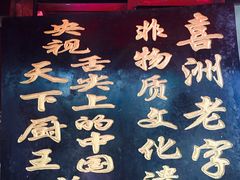 喜洲老字
非物质文化遗
舌尖上的中国
央视
天下厨王